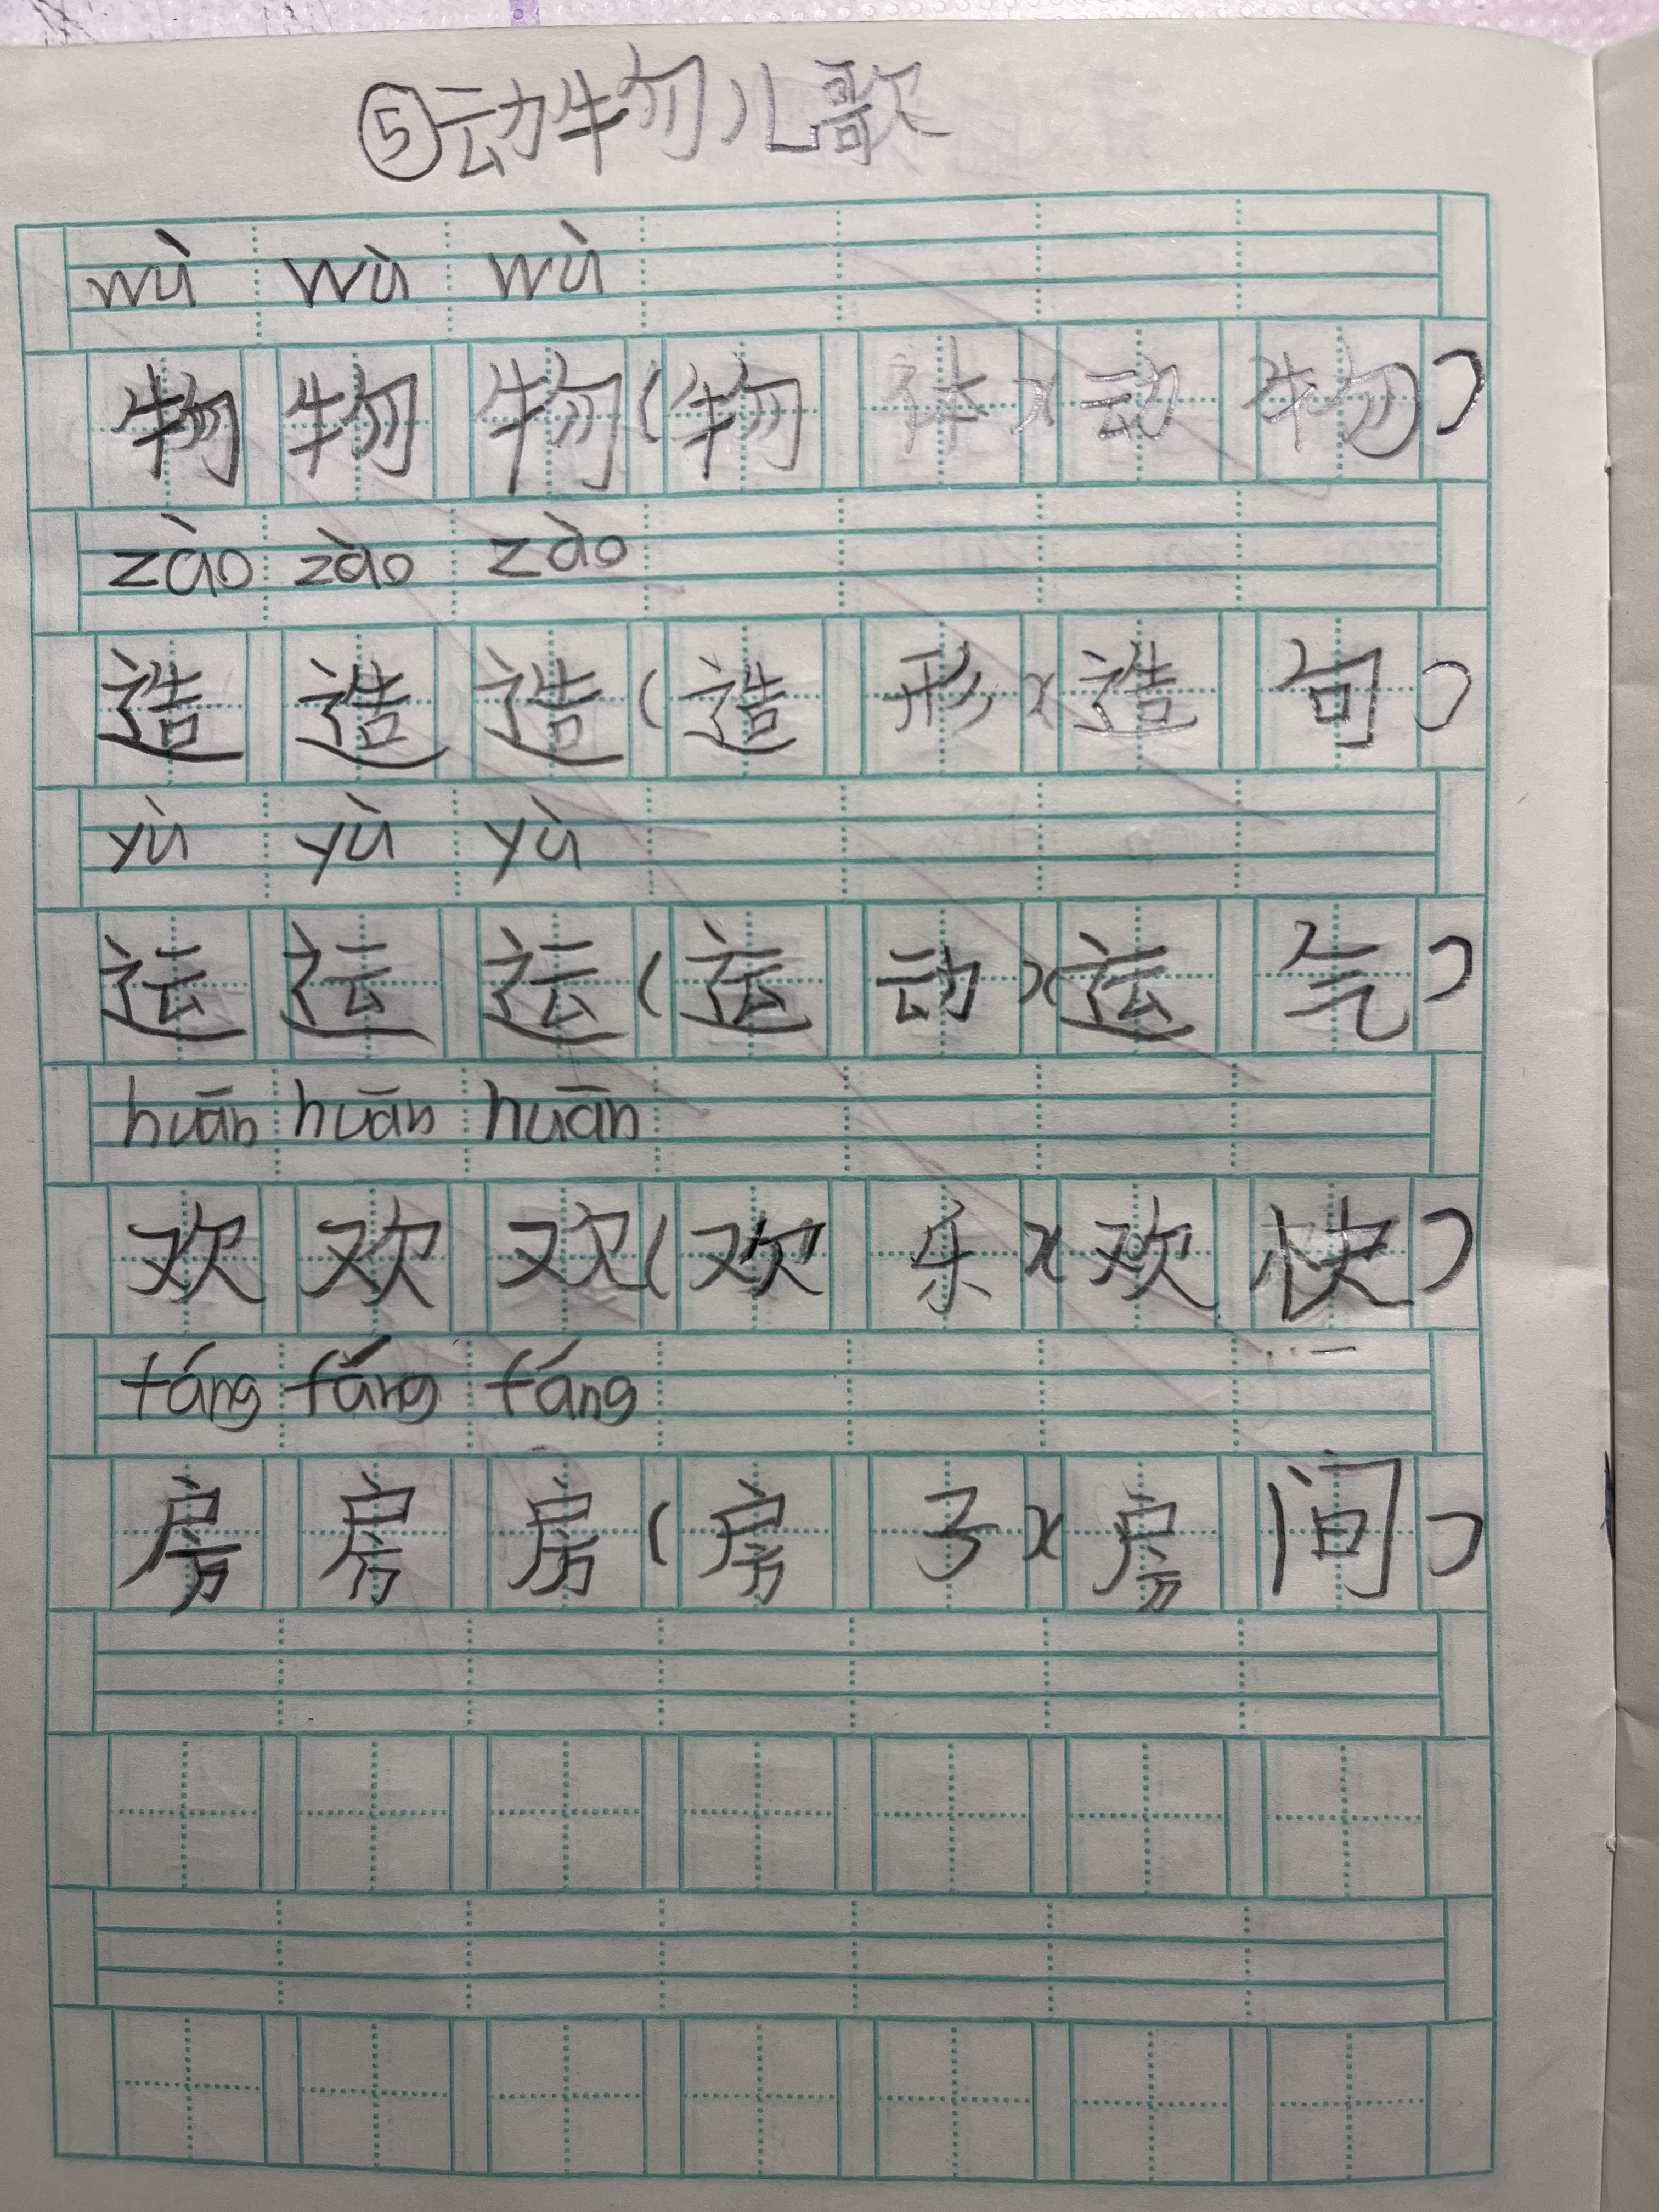 ⑤动物儿歌
wù wù wù
物 物 物(物 体)(动 物)
zào zào zào
造 造 造(造 形)(造 句)
yù yù yù
运 运 运(运 动)(运 气)
huān huān huān
欢 欢 欢(欢 乐)(欢 快)
fáng fáng fáng
房 房 房(房 子)(房 间)